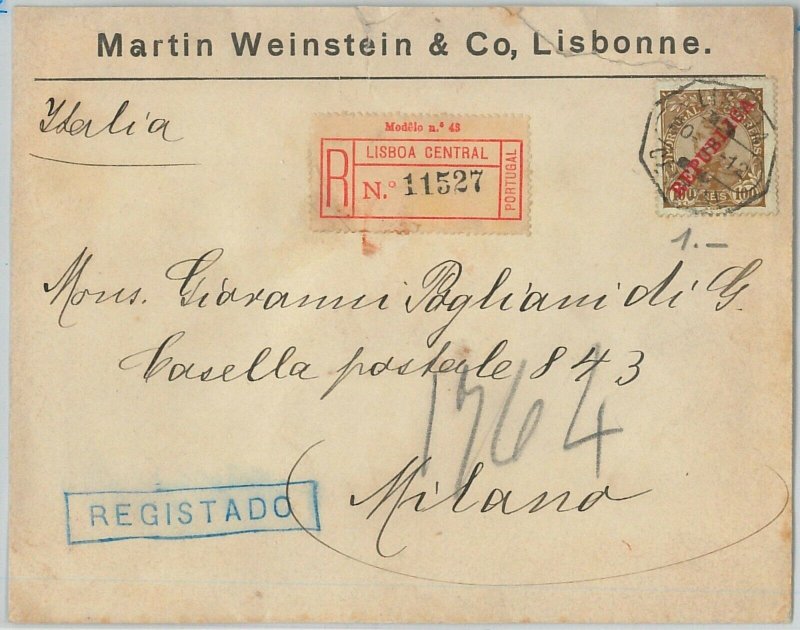 Martin Weinstein & Co, Lisbonne.
Italia
Modêlo n.º 48
R
LISBOA CENTRAL
N.º 11527
PORTUGAL
REPUBLICA
100 REIS 100
1.—
Mons. Giovanni Pogliani di G.
Casella postale 843
1764
Milano
REGISTADO